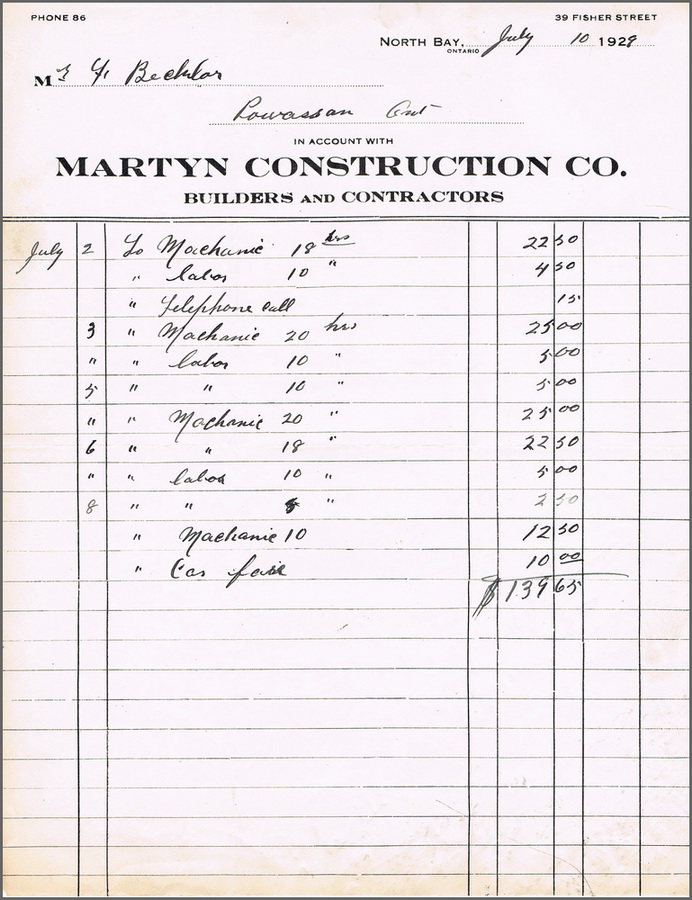 PHONE 86
39 FISHER STREET
NORTH BAY, ONTARIO July 10 1929
Mr
Powassan Ont
IN ACCOUNT WITH
MARTYN CONSTRUCTION CO.
BUILDERS AND CONTRACTORS
July 2 To Machanic 18 hrs 22 50
" labor 10 " 4 50
" Telephone call 15
3 " Machanic 20 hrs 25 00
" " labor 10 " 5 00
5 " " 10 " 5 00
" " Machanic 20 " 25 00
6 " " 18 " 22 50
" " labor 10 " 5 00
8 " " 5 " 2 50
" Machanic 10 12 50
" Car fare 10 00
$139 65